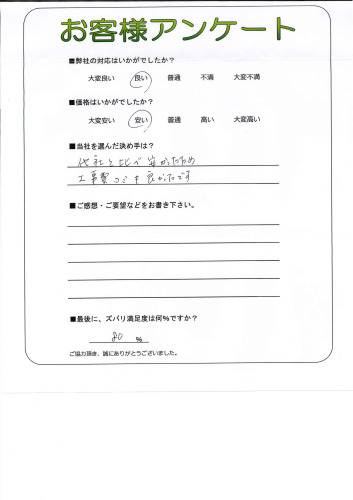 お客様アンケート
■弊社の対応はいかがでしたか？
大変良い 良い 普通 不満 大変不満
■価格はいかがでしたか？
大変安い 安い 普通 高い 大変高い
■当社を選んだ決め手は？
他社と比べ安かったため
工事費コミで良かったです
■ご感想・ご要望などをお書き下さい。
■最後に、ズバリ満足度は何%ですか？
80 %
ご協力頂き、誠にありがとうございました。